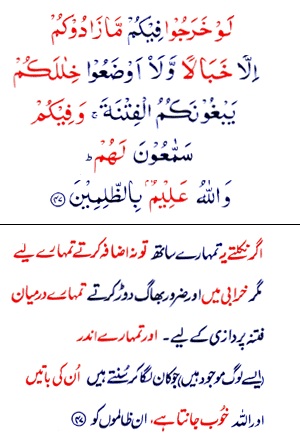 لَوْ خَرَجُوْا فِيْكُمْ مَّا زَادُوْكُمْ
اِلَّا خَبَالًا وَّلَا۟اَوْضَعُوْا خِلٰلَكُمْ
يَبْغُوْنَكُمُ الْفِتْنَةَ ۚ وَفِيْكُمْ
سَمّٰعُوْنَ لَهُمْ ؕ
وَاللّٰهُ عَلِيْمٌۢ بِالظّٰلِمِيْنَ ﴿۴۷﴾
اگر نکلتے یہ تمہارے ساتھ تو نہ اضافہ کرتے تمہارے لیے
مگر خرابی میں اور ضرور بھاگ دوڑ کرتے تمہارے درمیان
فتنہ پردازی کے لیے۔ اور تمہارے اندر
(ایسے لوگ موجود ہیں) جو کان لگا کر سُنتے ہیں اُن کی باتیں
اور اللہ خُوب جانتا ہے، ان ظالموں کو ﴿۴۷﴾